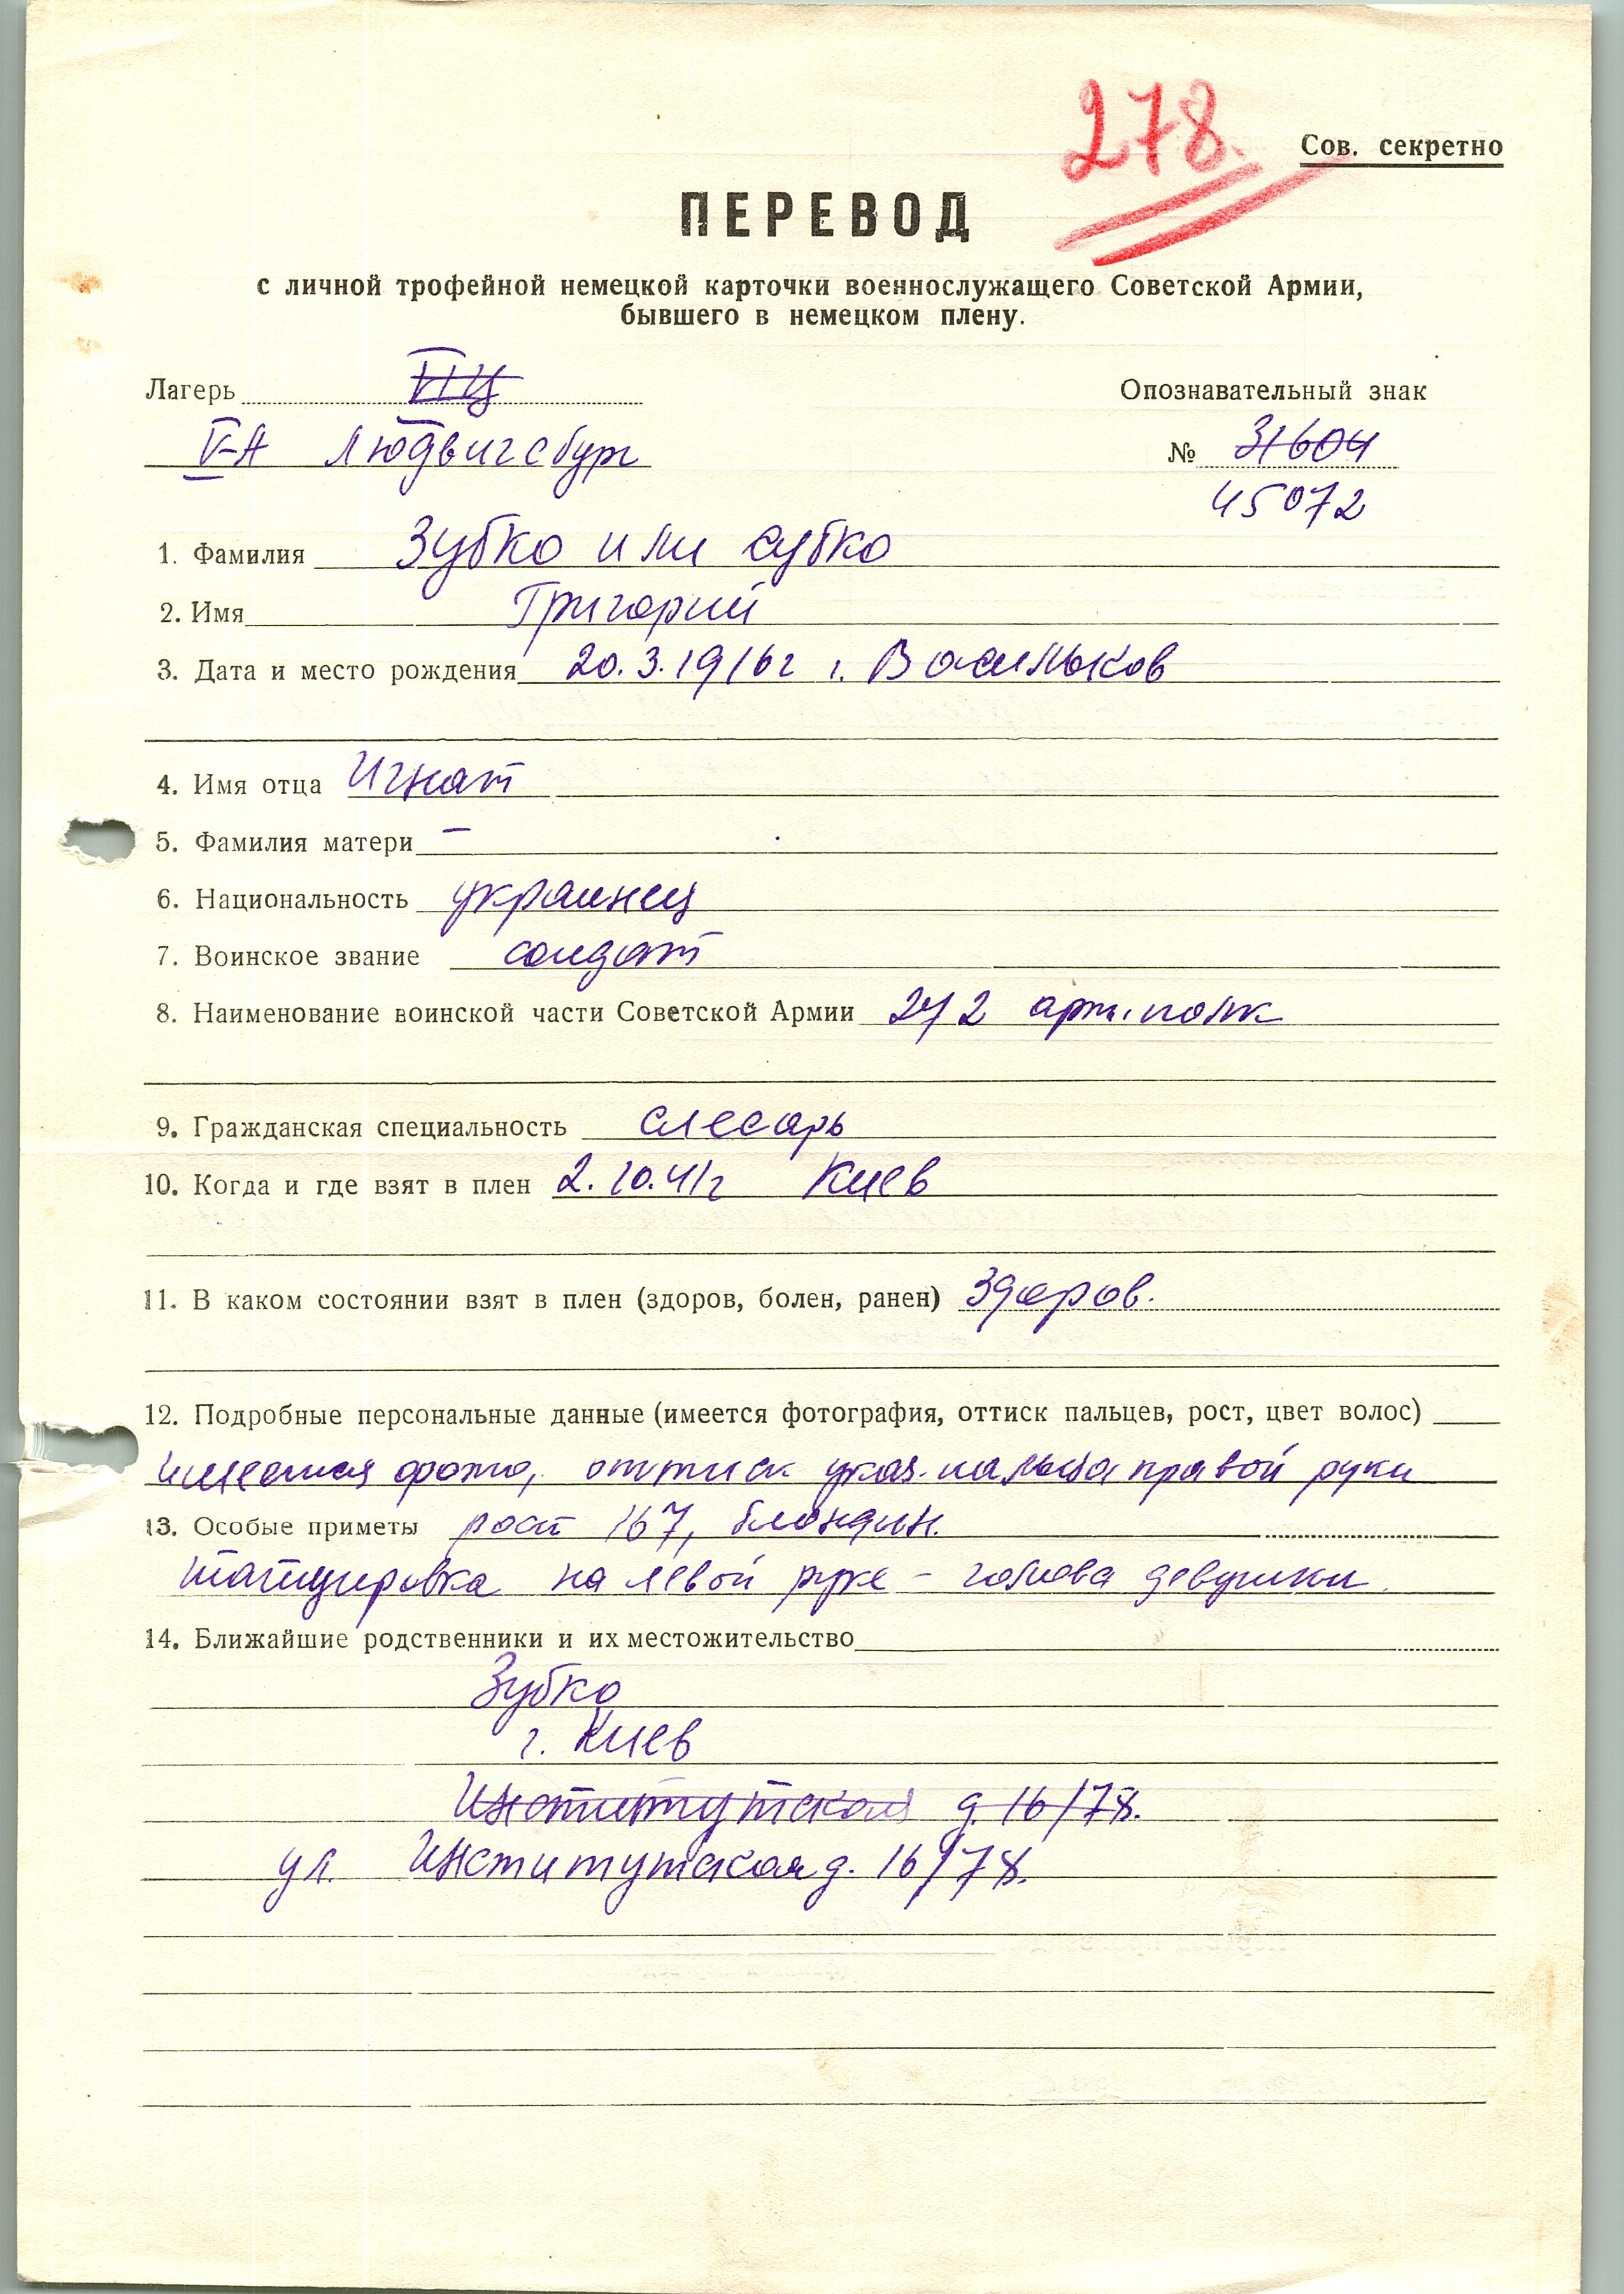 278.
Сов. секретно
ПЕРЕВОД
с личной трофейной немецкой карточки военнослужащего Советской Армии,
бывшего в немецком плену.
Лагерь
Опознавательный знак
V-А Людвигсбург
№ 31604
45072
1. Фамилия Зубко или Субко
2. Имя Григорий
3. Дата и место рождения 20.3.1916г г. Васильков
4. Имя отца Игнат
5. Фамилия матери –
6. Национальность украинец
7. Воинское звание солдат
8. Наименование воинской части Советской Армии 272 арт. полк
9. Гражданская специальность слесарь
10. Когда и где взят в плен 2.10.41г Киев
11. В каком состоянии взят в плен (здоров, болен, ранен) Здоров.
12. Подробные персональные данные (имеется фотография, оттиск пальцев, рост, цвет волос)
имеется фото, оттиск указ. пальца правой руки
13. Особые приметы рост 167, блондин.
татуировка на левой руке – голова девушки.
14. Ближайшие родственники и их местожительство
Зубко
г. Киев
Институтская д. 16/78.
ул. Институтская д. 16/78.